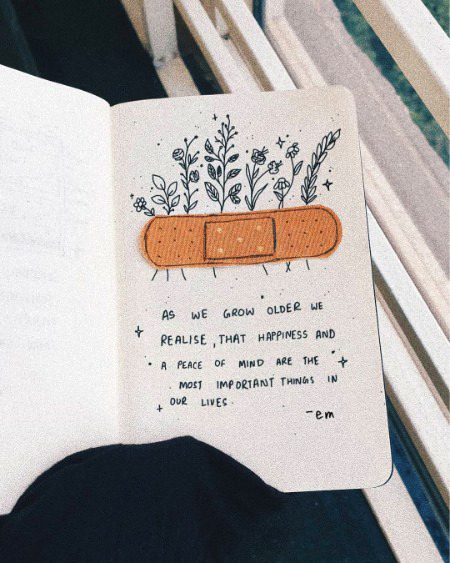 AS WE GROW OLDER WE
REALISE, THAT HAPPINESS AND
A PEACE OF MIND ARE THE
MOST IMPORTANT THINGS IN
OUR LIVES.
-em